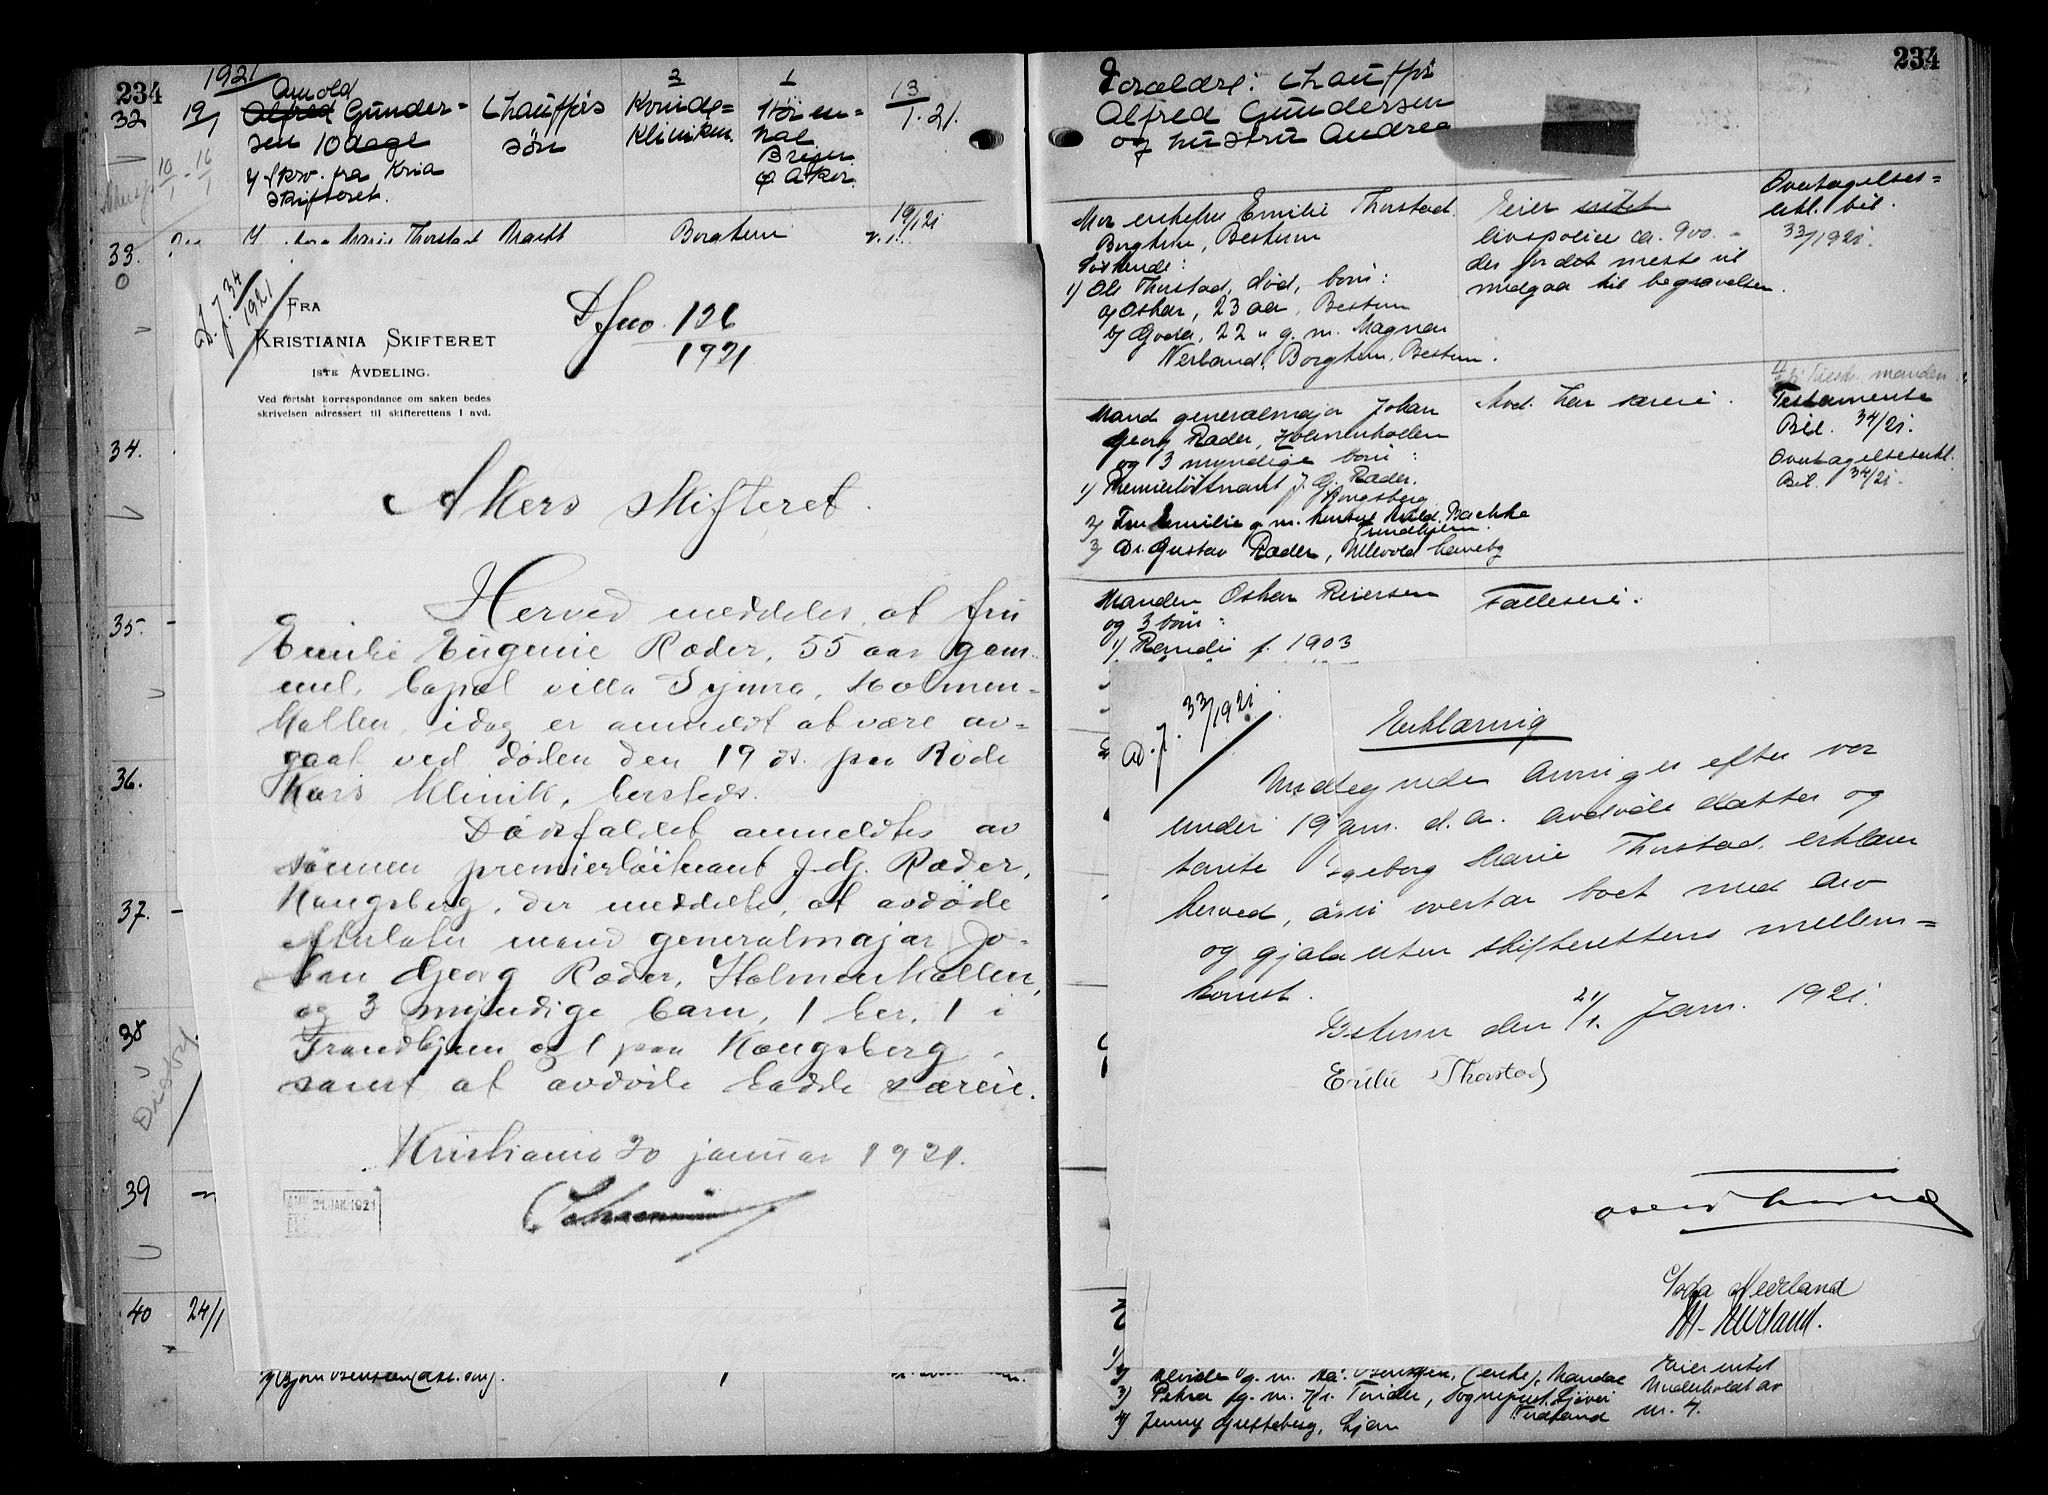 234
1921
32
19/1
Arnold
Alfred Gunder-
sen 10 dage
y skr. fra Kria
Skifteret.
Chauffør
søn
3
Kvinde=
Kliniken.
1
Aker.
13/1.21.
10/1 - 16/1
33.
Marie Thorstad
Borgheim
19/1 21
34.
35.
36.
37.
38
39
40
24/1
D. J. 34/1921
FRA
KRISTIANIA SKIFTERET
1STE AVDELING.
Ved fortsat korrespondance om saken bedes
skrivelsen adressert til skifterettens I avd.
Djno. 126
1921
Akers skifteret.
Herved meddeles, at fru
Emilie Eugenie Ræder, 55 aar gam-
mel, bopæl villa Symra, Holmen=
kollen, idag er anmeldt at være av=
gaat ved døden den 19 ds. paa Røde
Kors Klinik, hersteds.
Dødsfaldet anmeldtes av
sønnen premierløitnant J. G. Ræder,
Kongsberg, der meddelte, at avdøde
efterlater mand generalmajor Jo-
han Georg Ræder, Holmenkollen,
og 3 myndige barn, 1 her, 1 i
Trondhjem og 1 paa Kongsberg,
samt at avdøde hadde særeie.
Kristiania 20 januar 1921.
21. JAN. 1921
234
Forældre: Chauffør
Alfred Gundersen
og hustru Andrea
Mor enkefru Emilie Thorstad.
Borgheim, Bestum
Søskende:
1) Ole Thorstad, død, barn:
a) Oskar, 23 aar, Bestum
b) Goda, 22 " g. m. Magnus
Nerland, Borgheim, Bestum.
Eier intet
livspolice ca. 900.-
der for det meste vil
medgaa til begravelsen.
Overtagelses=
erkl. bil.
33/1921.
Mand generalmajor Johan
Georg Ræder, Holmenkollen
og 3 myndige barn:
1) Premierløitnant J. G. Ræder.
Kongsberg
2) Fru Emilie g. m. Bachke
Trondhjem.
3) Dr. Gustav Ræder, Ullevold
Avd. har særeie.
Testamente
Bil. 34/21.
Overtagelseserkl.
Bil. 34/21.
Manden Oskar Reiersen
og 3 barn:
1) Randi f. 1903
Fælleseie.
D. J. 33/1921.
Erklæring
Undtegnede arvinger efter vor
under 19 jan. d. a. avdøde datter og
tante Ingeborg Marie Thorstad, erklærer
herved, at vi overtar boet med arv
og gjæld uten skifterettens mellem=
komst.
Bestum den 21/1. Jan. 1921.
Emilie Thorstad
Goda Nerland
M. Nerland.
3) Petra g. m. Tinder,
4) Jenny
Eier intet
Underholdt av
nr. 4.